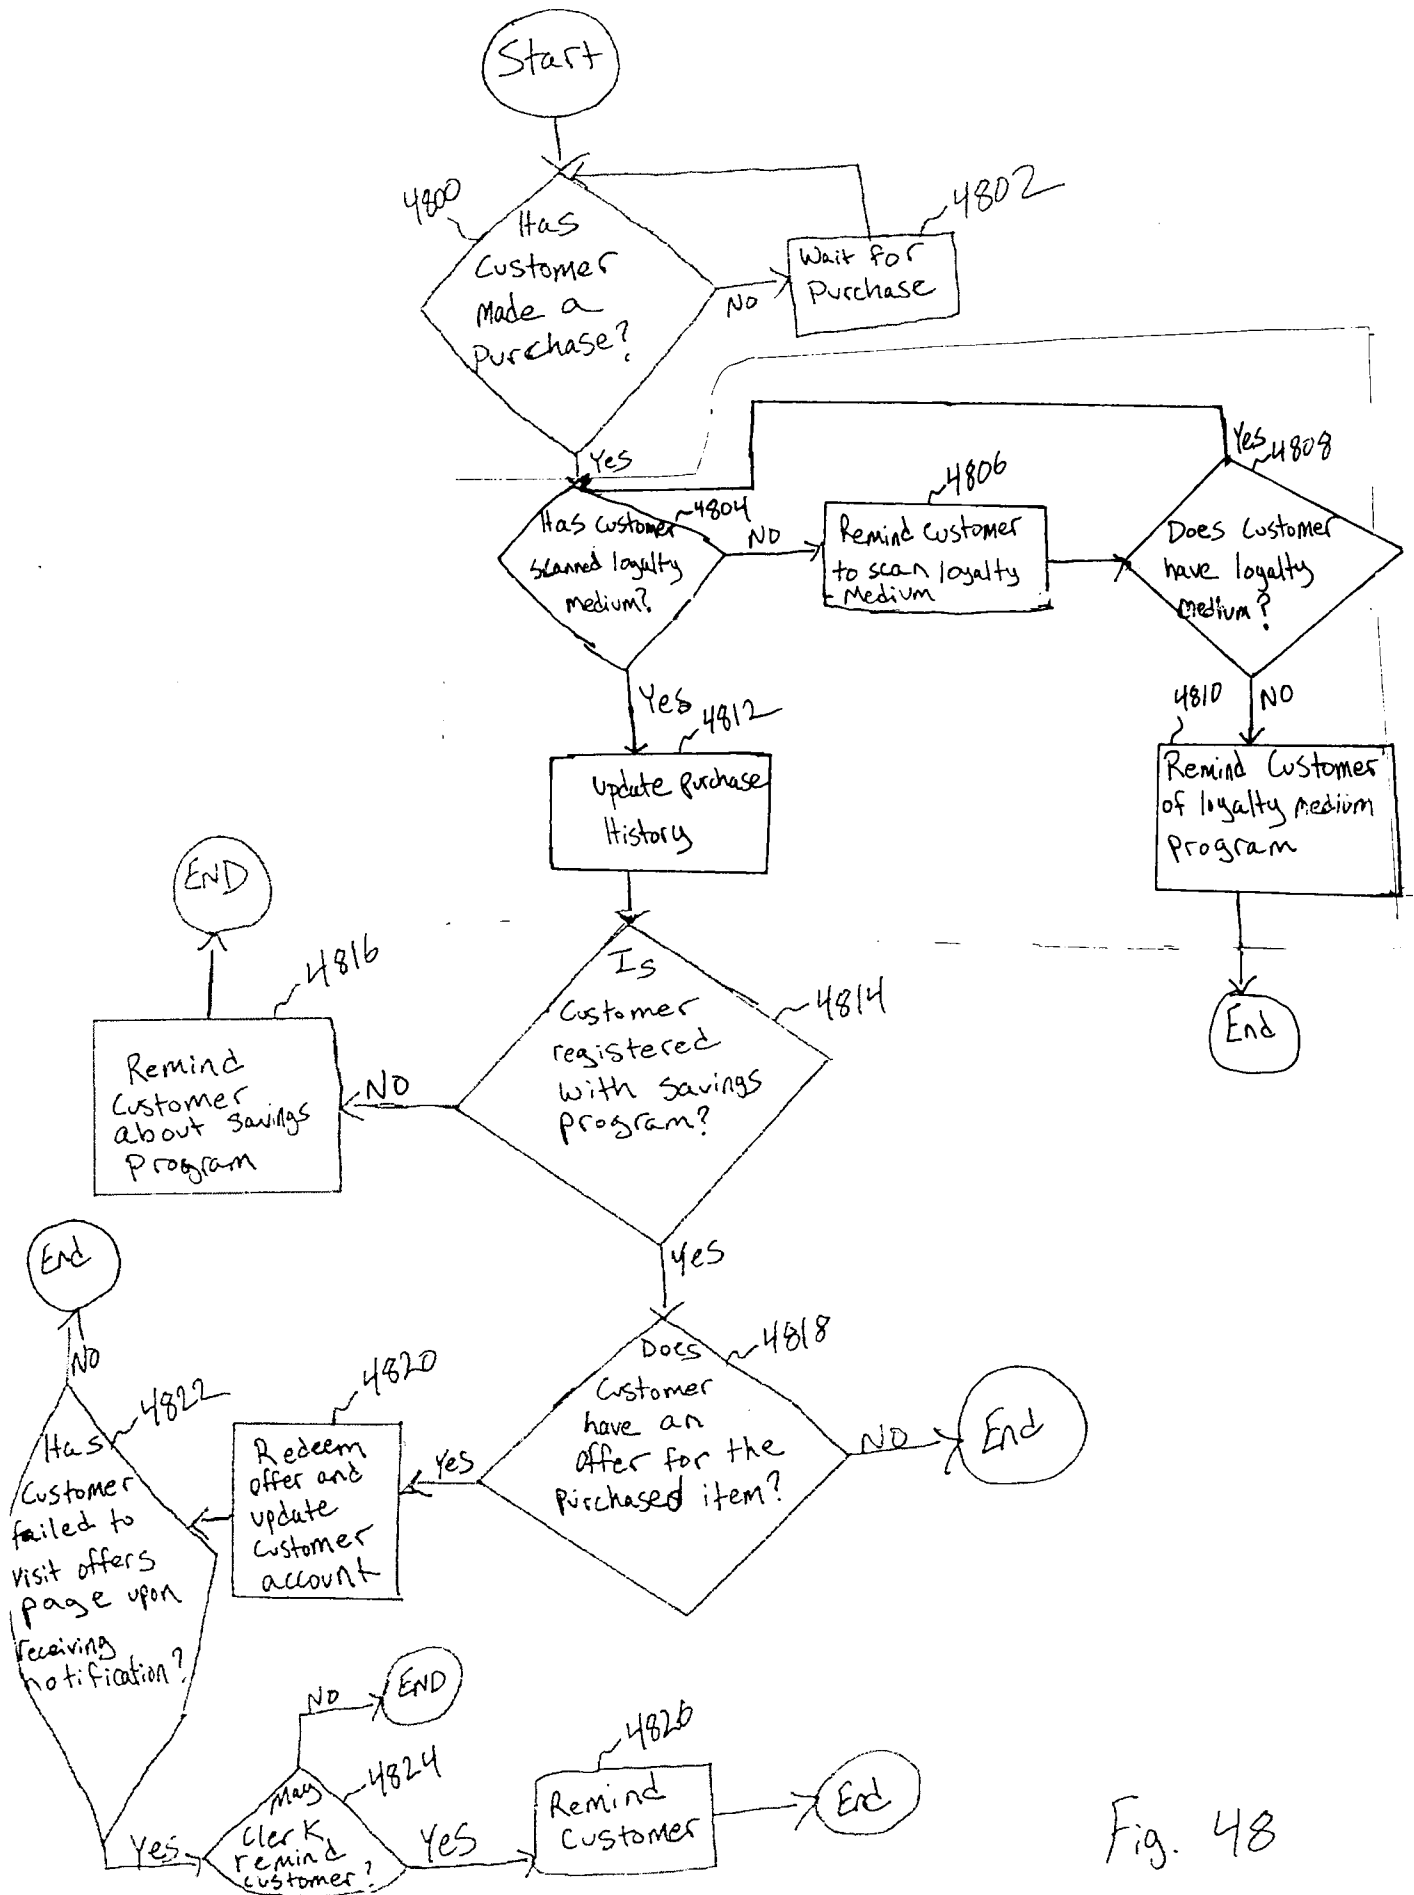 Start
4800
Has
Customer
Made a
purchase?
NO
4802
Wait for
Purchase
Yes
4804
Has customer
scanned loyalty
medium?
NO
4806
Remind Customer
to scan loyalty
Medium
Yes
4808
Does Customer
have loyalty
Medium?
NO
4810
Remind Customer
of loyalty medium
program
End
Yes
4812
Update Purchase
History
4814
Is
Customer
registered
with savings
program?
NO
4816
Remind
Customer
about Savings
Program
END
Yes
4818
Does
Customer
have an
offer for the
purchased item?
NO
End
Yes
4820
Redeem
offer and
update
Customer
account
4822
Has
Customer
failed to
visit offers
page upon
receiving
notification?
NO
End
Yes
4824
May
Clerk
remind
customer?
NO
END
Yes
4826
Remind
Customer
End
Fig. 48